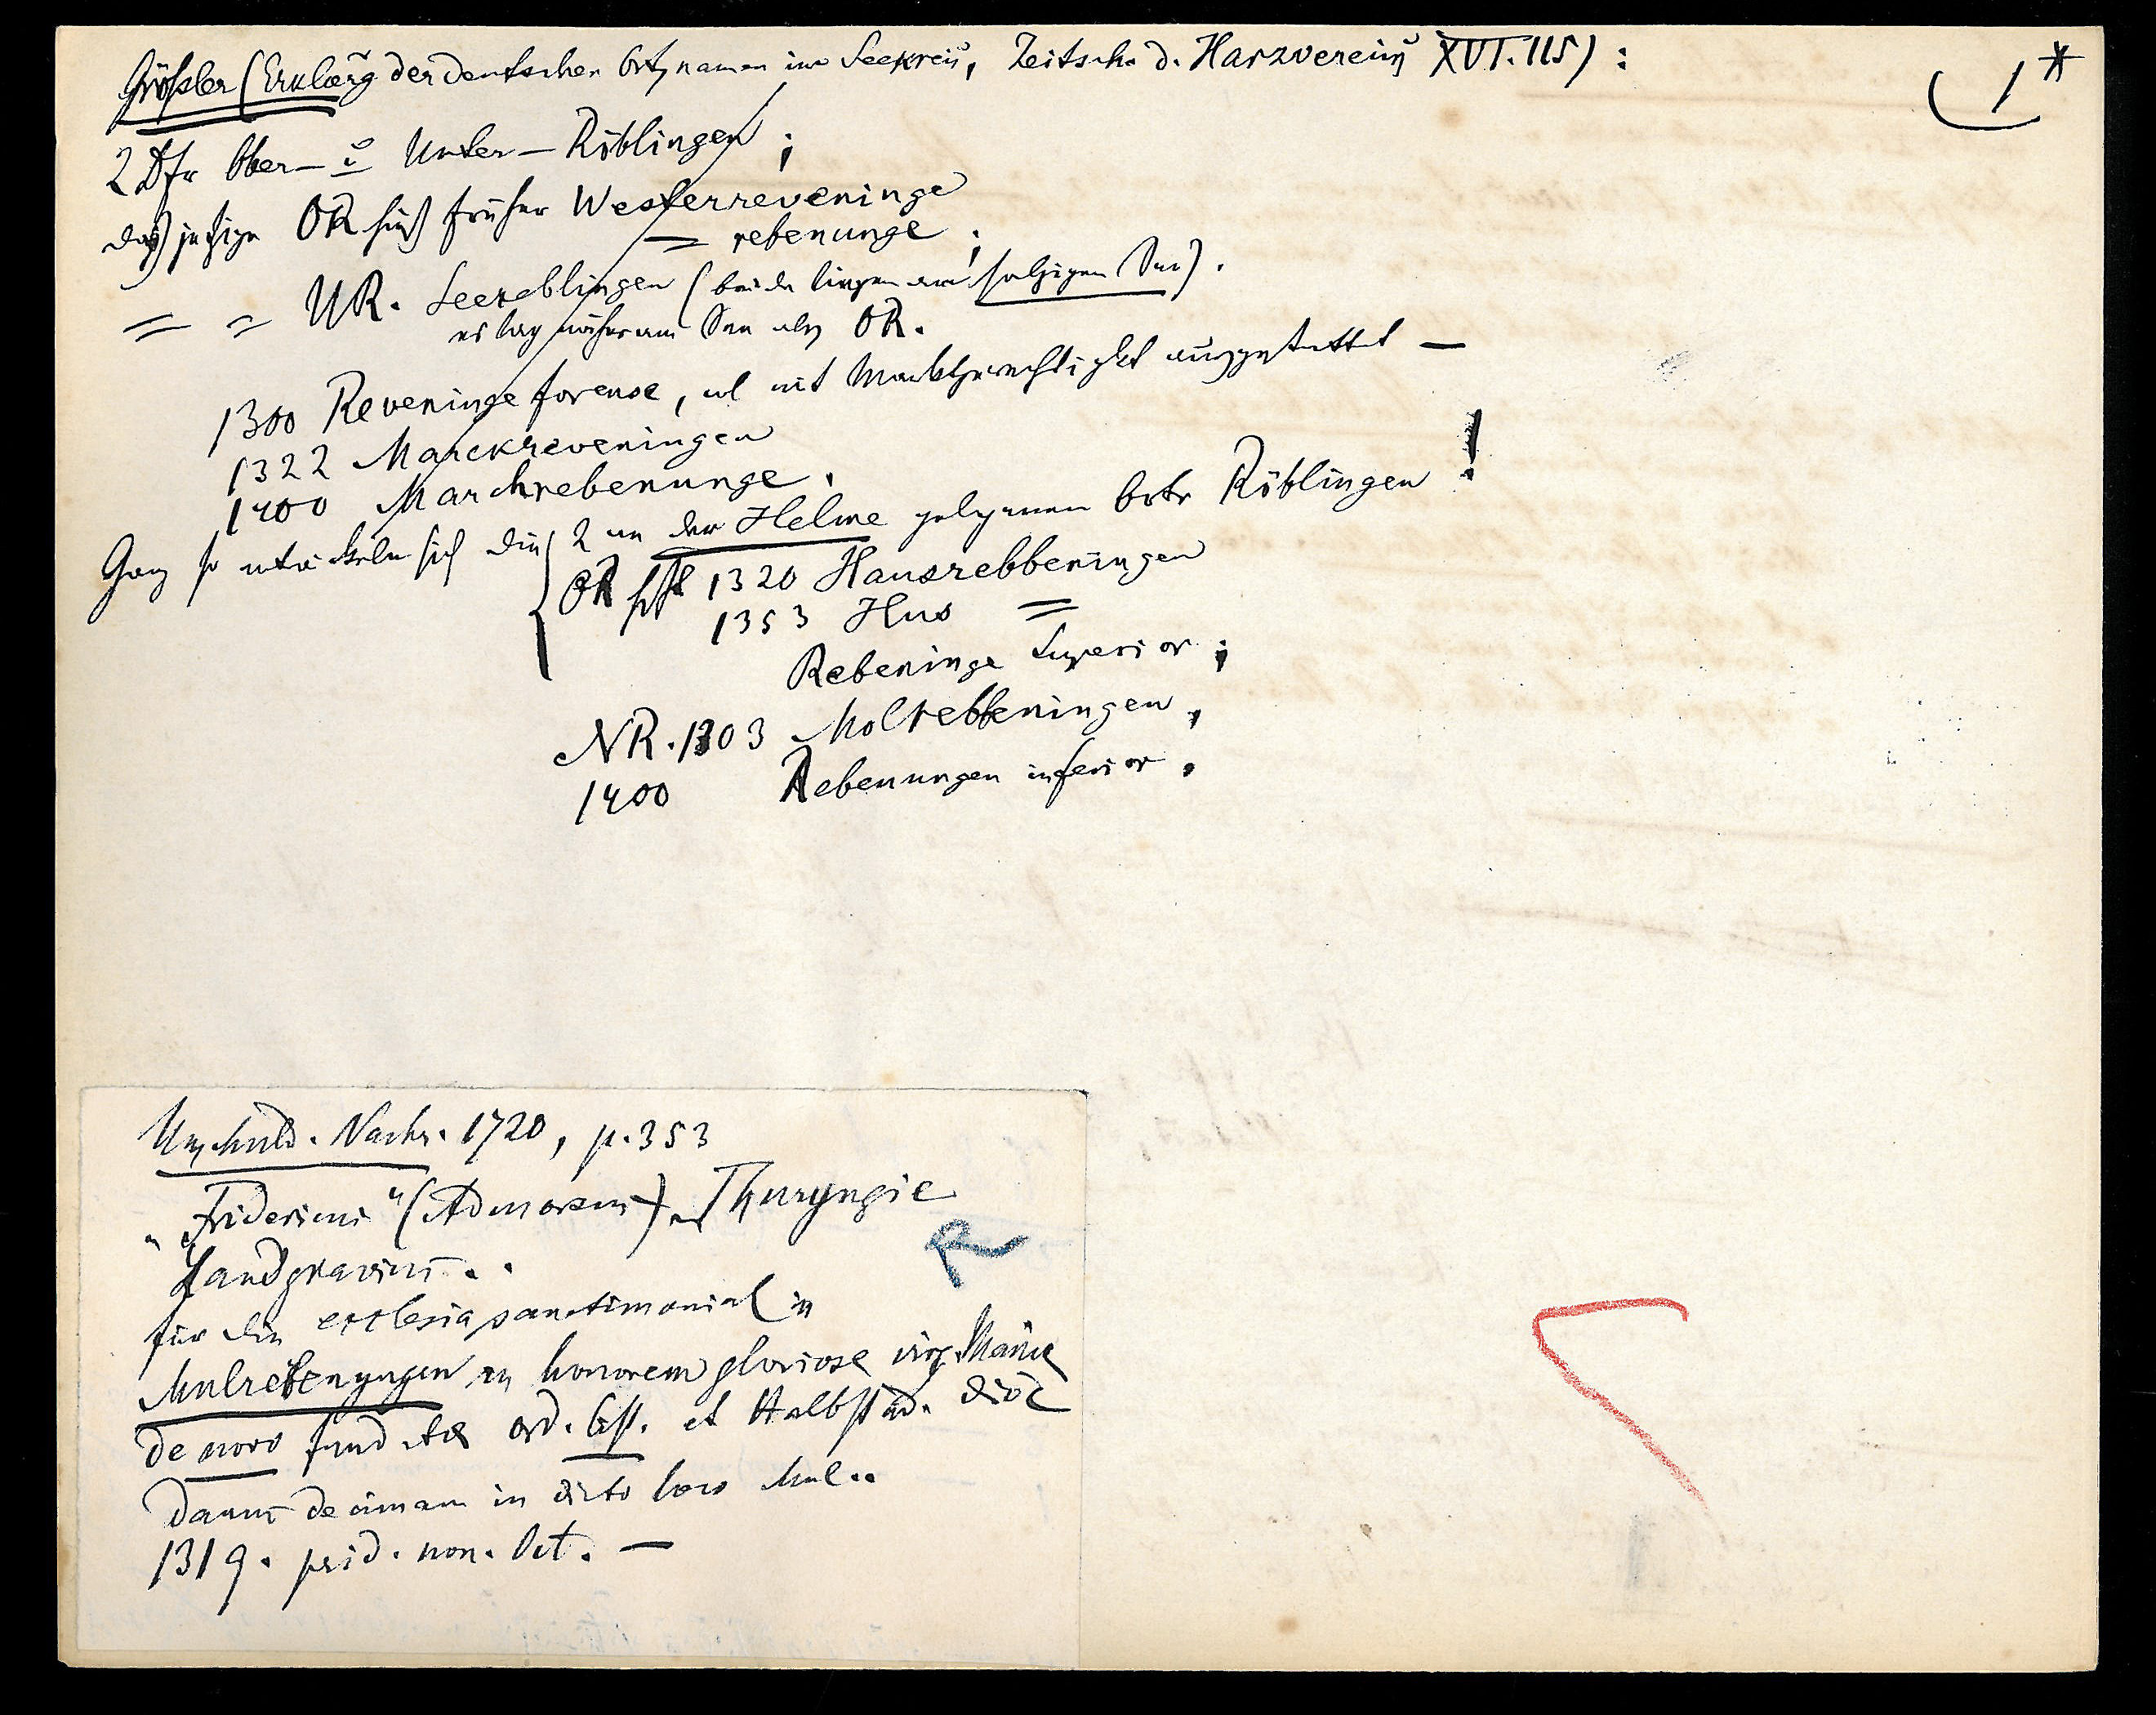 Größler (Erklärg der deutschen Ortsnamen im Seekreis, Zeitsch. d. Harzvereins XVI. 115) :
1*
2 Dfr Ober- u Unter-Röblingen ;
das jetzige OR hieß früher Westerreveninge
= rebenunge ;
= = UR. Seereblingen (beide liegen am salzigen See).
es lag näher am See als OR.
1300 Reveninge forense, al mit Marktgerechtigkt ausgestattet —
1322 Marckreveningen
1400 Marchrebenunge.
Ganz so entwickeln sich die 2 an der Helme gelegenen Orte Röblingen !
OR hßt 1320 Hausrebbeningen
1353 Hus =
Rebeninge superior ;
NR. 1303 Molrebbeningen,
1400 Rebenungen inferior.
Unschuld. Nachr. 1720, p. 353
"Fridericus" (Admorsus) Thuryngie
Landgravius..
für die ecclesia sanctimonial in
Mulrebenyngen in honorem gloriose virg. Marie
de novo fundata ord. Cist. et Halbstad. dioc
damus decimam in dicto loco Mul..
1319. prid. non. Oct. —